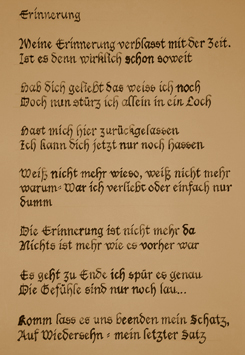 Erinnerung
Meine Erinnerung verblasst mit der Zeit.
Ist es denn wirklich schon soweit
Hab dich geliebt das weiss ich noch
Doch nun stürz ich allein in ein Loch
Hast mich hier zurückgelassen
Ich kann dich jetzt nur noch hassen
Weiß nicht mehr wieso, weiß nicht mehr
warum- War ich verliebt oder einfach nur
dumm
Die Erinnerung ist nicht mehr da
Nichts ist mehr wie es vorher war
Es geht zu Ende ich spür es genau
Die Gefühle sind nur noch lau...
Komm lass es uns beenden mein Schatz,
Auf Wiedersehn - mein letzter Satz